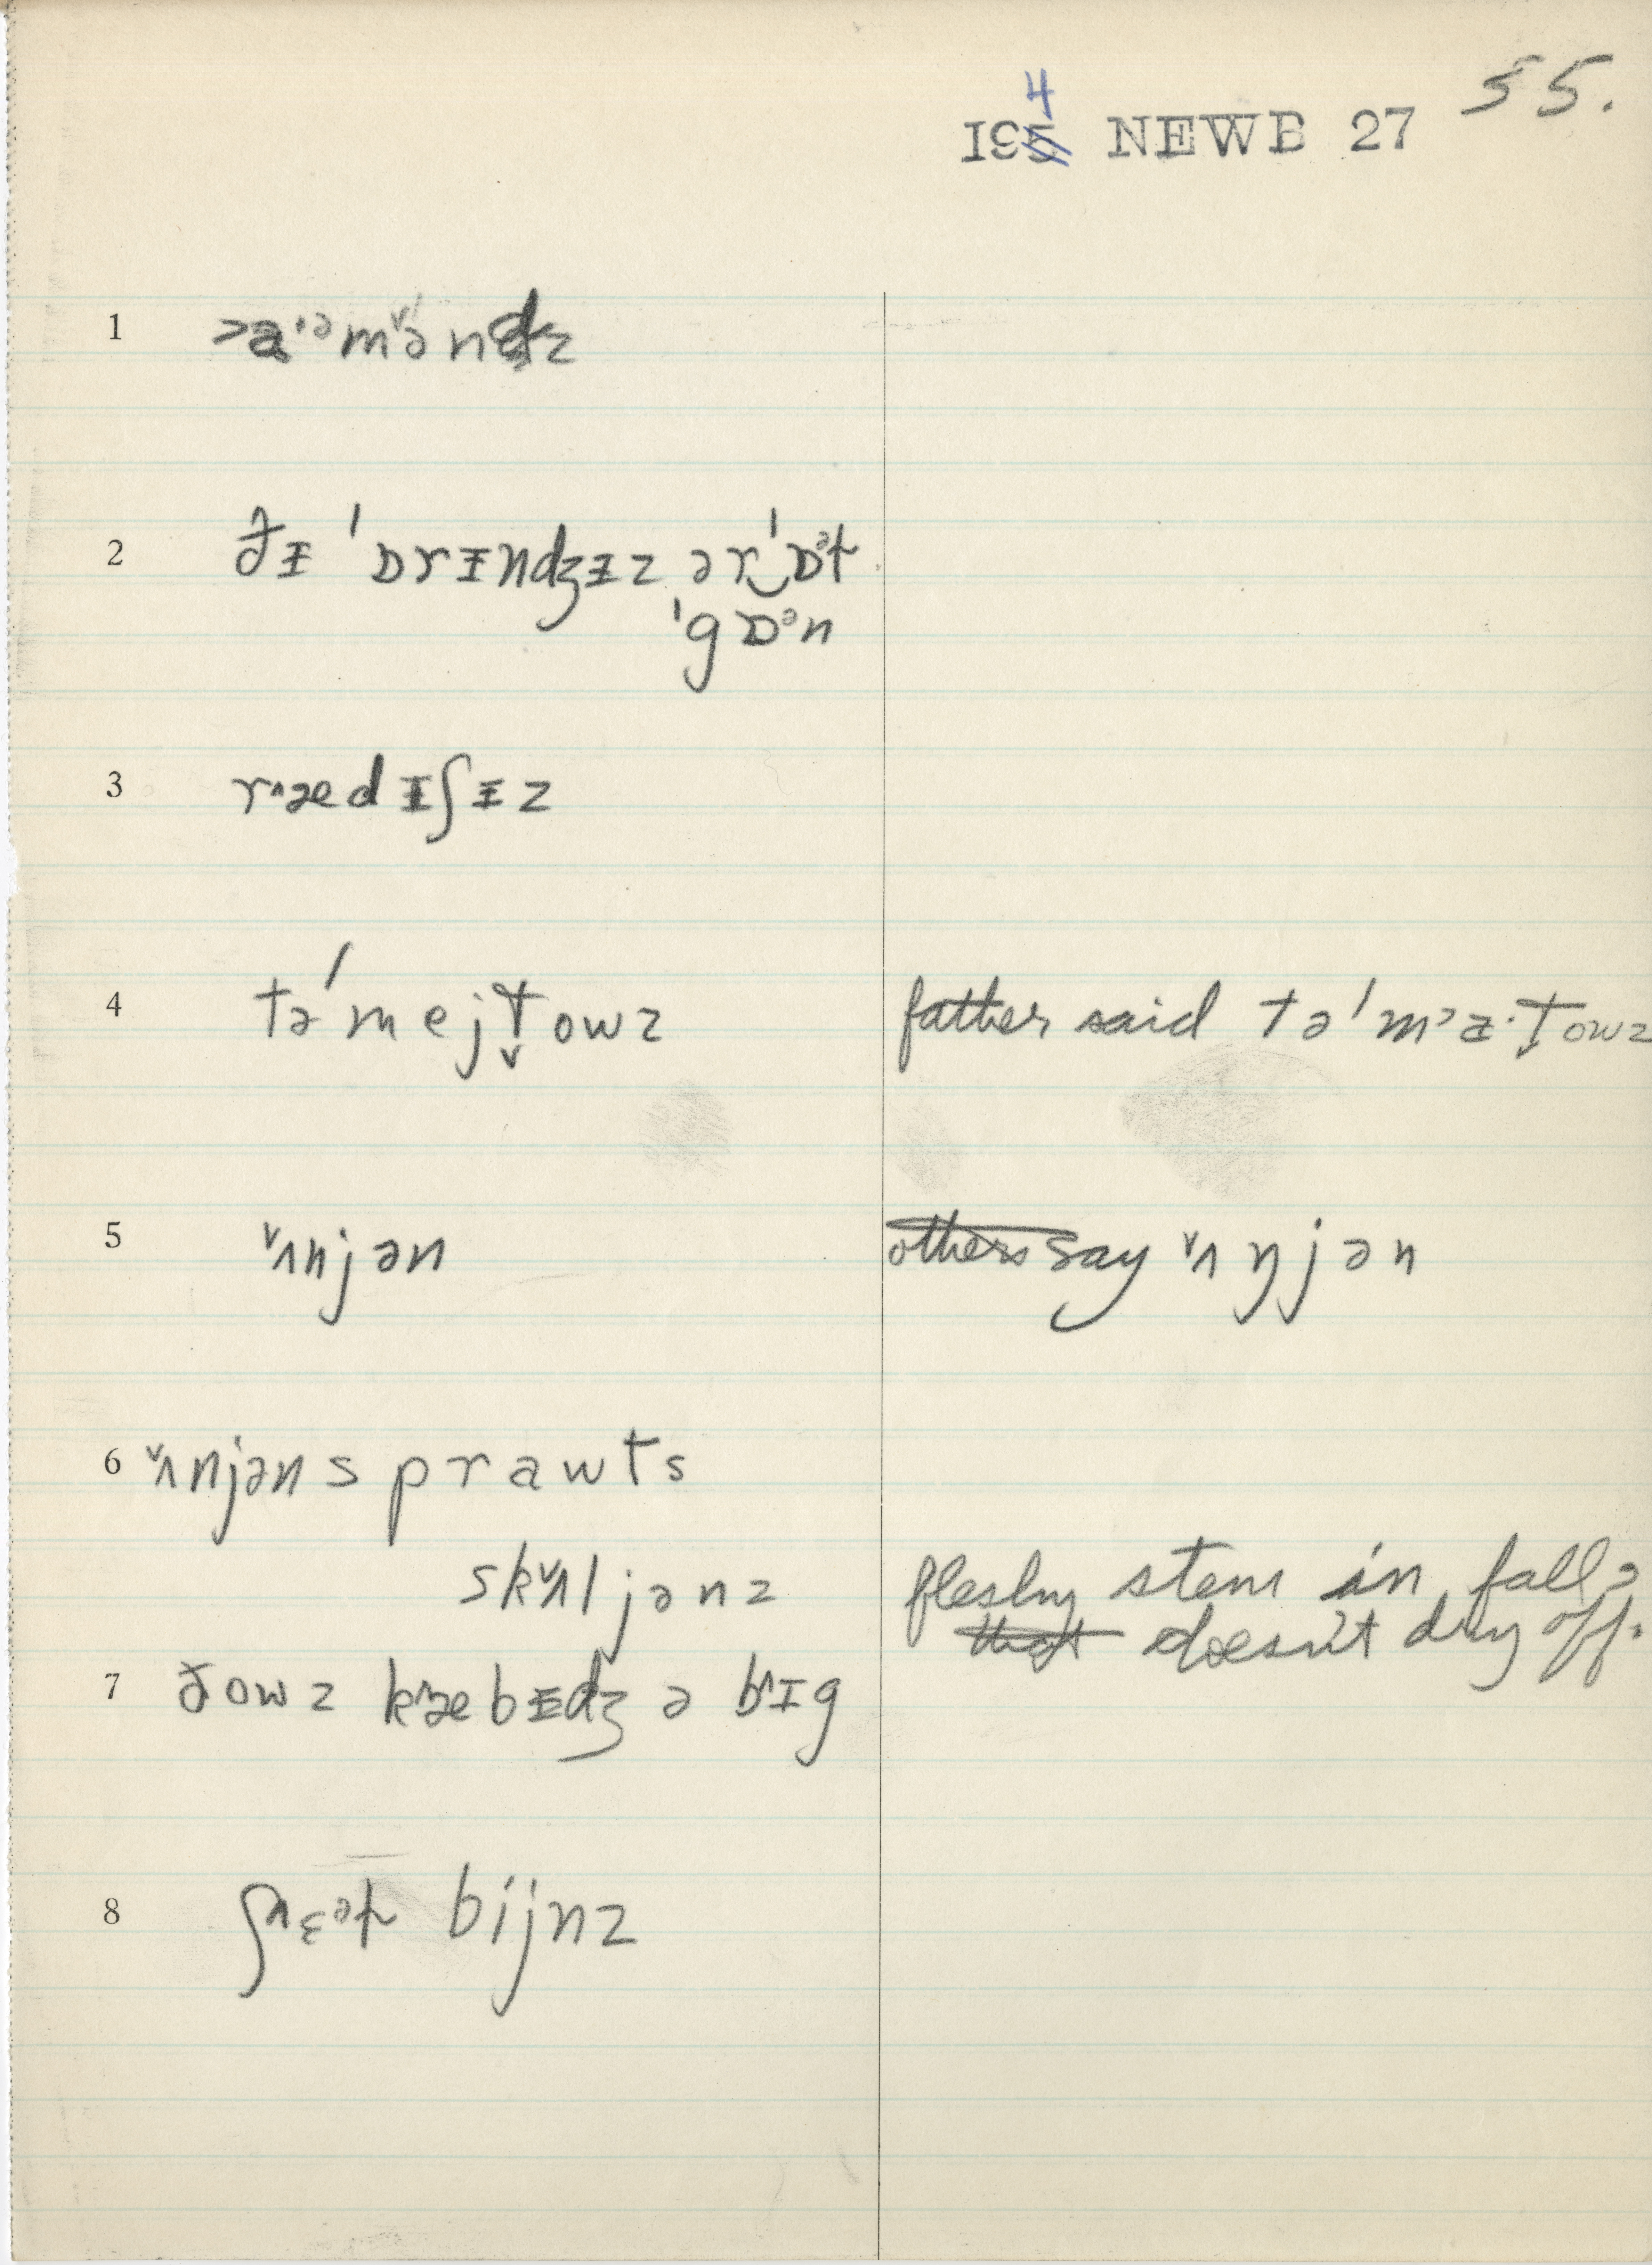 4
195 NEWB 27 55.
1
2 ðɪ ˈɒrɪndʒɪz ər ˈɒᵊɫ
ˈɡɒᵊn
3 r˄ædɪʃɪz
4 təˈmejt̬owz father said təˈm˃a·t̬owz
5 ˅ʌnjən others say ˅ʌŋjən
6 ˅ʌnjən sprawts
sk˅ʌljənz fleshy stem in fall,
that doesn't dry off.
7 ðowz k˄æbɪdʒ ə b˄ɪg
8 ʃ˄ɛᵊɫ bijnz